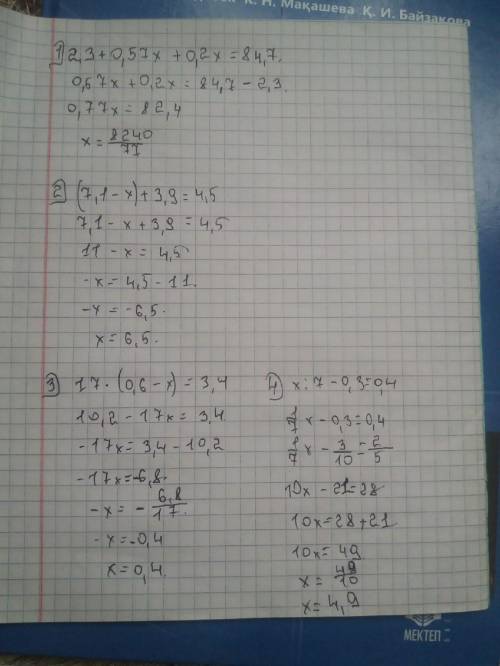 К. Н. Мақашева Қ. И. Байзакова
1) 2,3+0,57x+0,2x=84,7.
0,57x+0,2x=84,7-2,3.
0,77x=82,4
x=8240/77
2) (7,1-x)+3,9=4,5
7,1-x+3,9=4,5
11-x=4,5
-x=4,5-11.
-x=-6,5.
x=6,5.
3) 17·(0,6-x)=3,4
10,2-17x=3,4
-17x=3,4-10,2
-17x=-6,8.
-x=-6,8/17.
-x=-0,4
x=0,4.
4) x:7-0,3=0,4
1/7x-0,3=0,4
1/7x-3/10=2/5
10x-21=28
10x=28+21
10x=49
x=49/10
x=4,9
МЕКТЕП